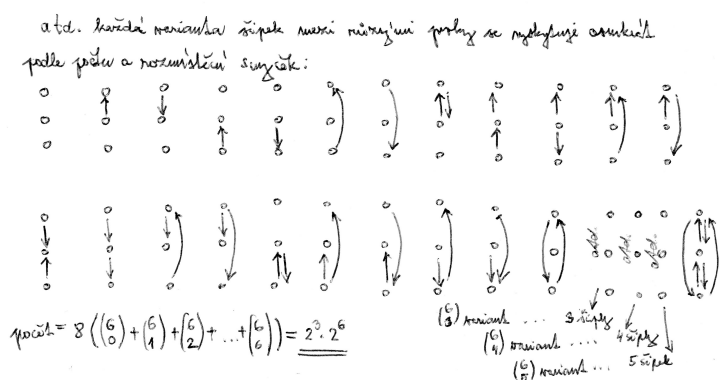 atd. každá varianta šipek mezi různými prvky se vyskytuje osmkrát
podle počtu a rozmístění smyček:
atd. atd. atd.
počet = 8 ((6 0) + (6 1) + (6 2) + ... + (6 6)) = 2³ · 2⁶
(6 3) variant .... 3 šipky
(6 4) variant .... 4 šipky
(6 5) variant ... 5 šipek